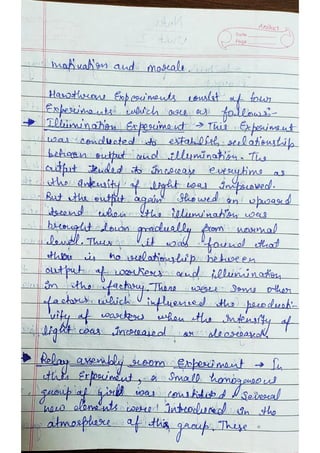 Date
Page
motivation and morale.
Hawthrone Experiments consist of four
Experiments which are as follows:-
→ Illumination Experiment → This Experiment
was conducted to establish relationship
between output and illumination. The
output tended to increase everytime as
the intensity of light was improved.
But the output again showed an upward
trend when the illumination was
brought down gradually from normal
level. Thus it was found that
there is no relationship between
output of workers and illumination
in the factory. There were some other
factors which influenced the producti-
vity of workers when the intensity of
light was increased or decreased.
→ Relay assembly room Experiment → In
this Experiment, a small homogeneous
group of girls was constituted. Several
new elements were introduced in the
atmosphere of this group. These